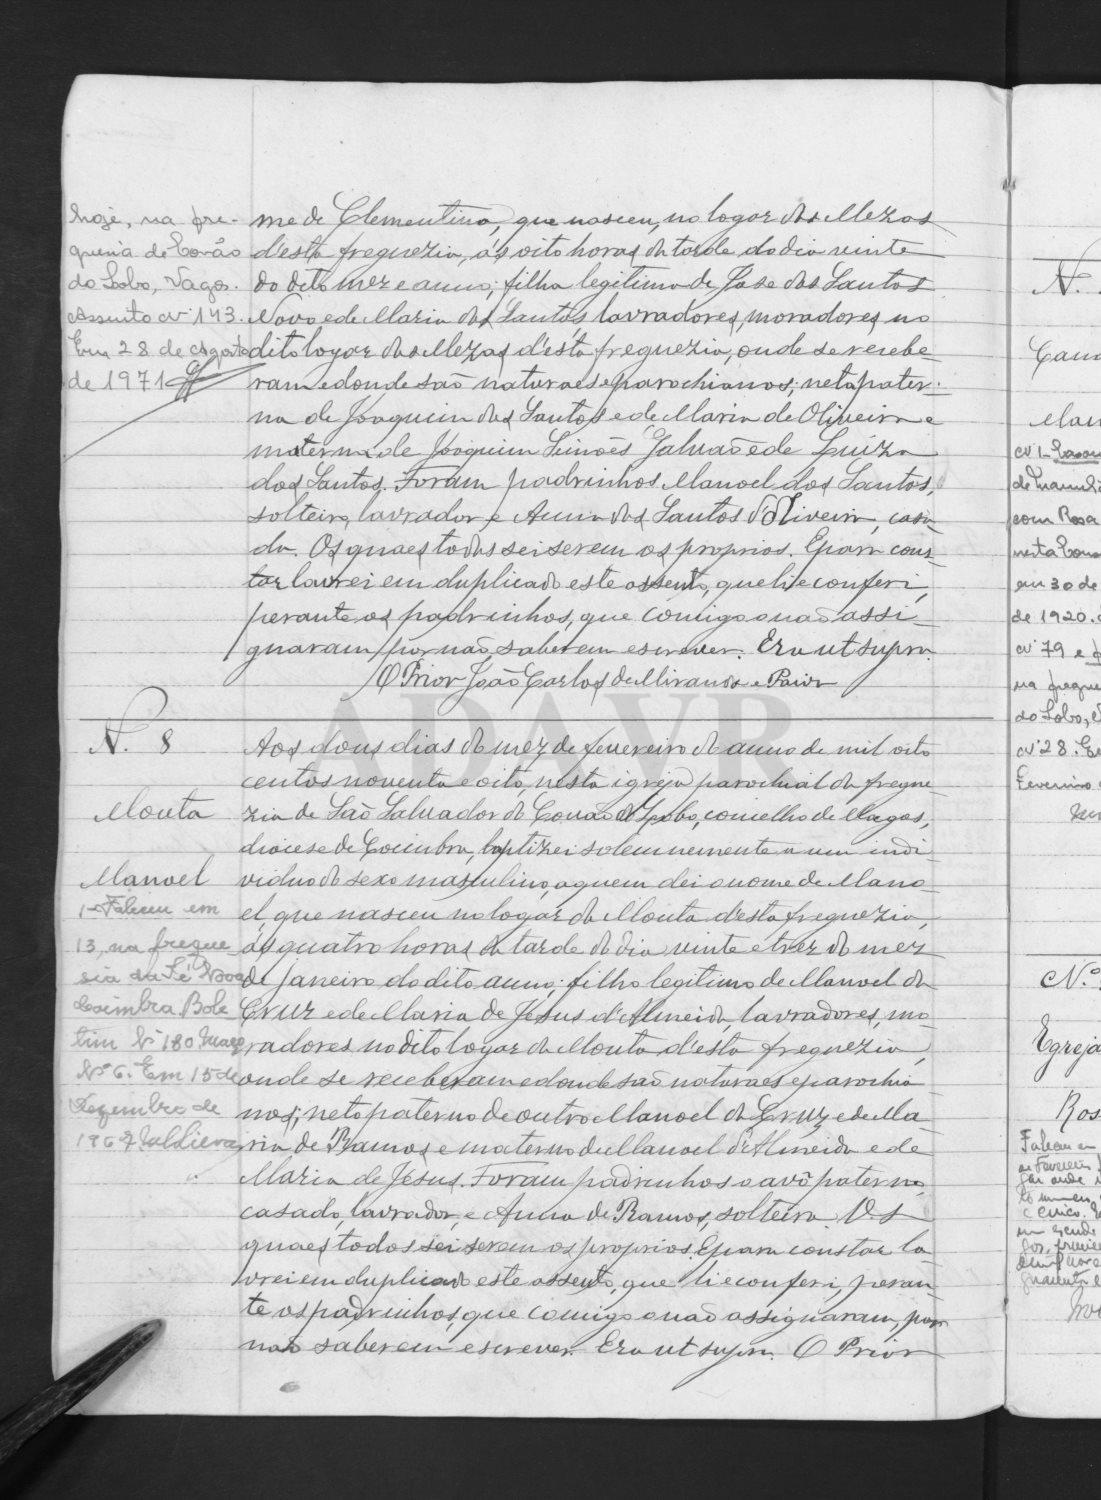 hoje, na fre-
guesia de Covão
do Lobo, Vagos.
Assento nº 143.
Em 28 de Agosto
de 1971
me de Clementina, que nasceu, no logar das Mezas
d'esta freguezia, ás oito horas da tarde do dia vinte
do dito mez e anno; filha legitima de José dos Santos
Novo e de Maria dos Santos, lavradores, moradores no
dito logar das Mezas d'esta freguezia, onde se recebe-
ram e donde são naturaes e parochianos; neta pater-
na de Joaquim dos Santos e de Maria de Oliveira e
materna de Joaquim Simões Galvão e de Luiza
dos Santos. Foram padrinhos Manoel dos Santos,
solteiro, lavrador e Anna dos Santos d'Oliveira, casa-
da. Os quaes todos sei serem os proprios. E para cons-
tar lavrei em duplicado este assento, que li e conferi,
perante os padrinhos, que comigo o não assi-
gnaram por não saberem escrever. Era ut supra.
O Prior João Carlos de Miranda e Paiva
ADAVR
N. 8
Mouta
Manoel
1- Faleceu em
13, na fregue-
sia da Sé Nova
Coimbra. Bole-
tim Nº 180 Maço
Nº 6. Em 15 de
Dezembro de
1967
Aos dous dias do mez de fevereiro do anno de mil oito
centos noventa e oito, nesta igreja parochial da fregue-
zia de São Salvador do Covão do Lobo, concelho de Vagos,
diocese de Coimbra, baptizei solemnemente a um indi-
viduo do sexo masculino, a quem dei o nome de Mano-
el, que nasceu no logar da Mouta d'esta freguezia,
ás quatro horas da tarde do dia vinte e trez do mez
de Janeiro do dito anno; filho legitimo de Manoel da
Cruz e de Maria de Jesus d'Almeida, lavradores, mo-
radores no dito logar da Mouta d'esta freguezia,
onde se receberam e donde são naturaes e parochia
nos; neto paterno de outro Manoel da Cruz e de Ma-
ria de Ramos e materno de Manoel d'Almeida e de
Maria de Jesus. Foram padrinhos o avô paterno,
casado, lavrador, e Anna de Ramos, solteira. Os
quaes todos sei serem os proprios. E para constar la
vrei em duplicado este assento, que li e conferi, peran-
te os padrinhos, que comigo o não assignaram, por
não saberem escrever. Era ut supra. O Prior
N.
Mano
Nº 1- Casou
com Rosa
em 30 de
de 1920.
nº 79 e
na fregue
do Lobo,
nº 28. Em
Fevereiro
N.º
Egreja
Ros
Faleceu em